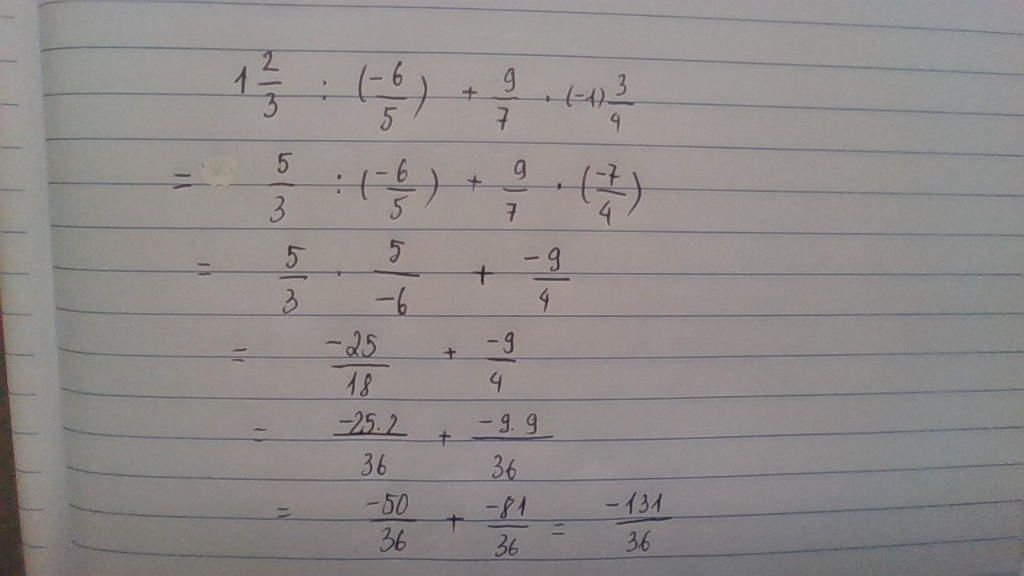 1 2/3 : (-6/5) + 9/7 . (-1) 3/4
= 5/3 : (-6/5) + 9/7 . (-7/4)
= 5/3 . 5/-6 + -9/4
= -25/18 + -9/4
= -25.2/36 + -9.9/36
= -50/36 + -81/36 = -131/36